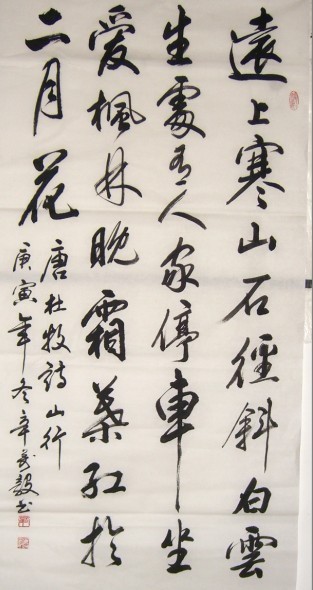 遠上寒山石徑斜白雲
生處有人家停車坐
愛楓林晚霜葉紅於
二月花
唐杜牧詩山行
庚寅年冬辛萬毅書